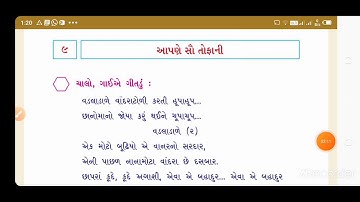 1:20
૯
આપણે સૌ તોફાની
ચાલો, ગાઈએ ગીતડું :
વડલાડાળે વાંદરાટોળી કરતી હૂપાહૂપ...
છાનોમાનો જોયા કરું થઈને ચૂપાચૂપ...
વડલાડાળે (૨)
એક મોટો બૂઢિયો એ વાનરનો સરદાર,
એની પાછળ નાનામોટા વાંદરા છે દસબાર.
છાપરાં કૂદે, કૂદે અગાસી, એવા એ બહાદુર... એવા એ બહાદુર